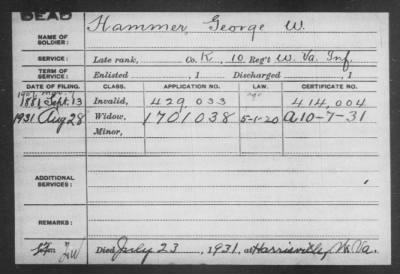 DEAD
NAME OF SOLDIER: Hammer, George W.
SERVICE: Late rank, Co. K, 10 Reg't W. Va. Inf.
TERM OF SERVICE: Enlisted , 1 Discharged , 1
DATE OF FILING. CLASS. APPLICATION NO. LAW. CERTIFICATE NO.
1881 Sept. 13 Invalid, 429,033 414,004
1931 Aug 28 Widow, 1701038 5-1-20 A10-7-31
Minor,
ADDITIONAL SERVICES:
REMARKS:
Died July 23, 1931, at Harrisville, W. Va.